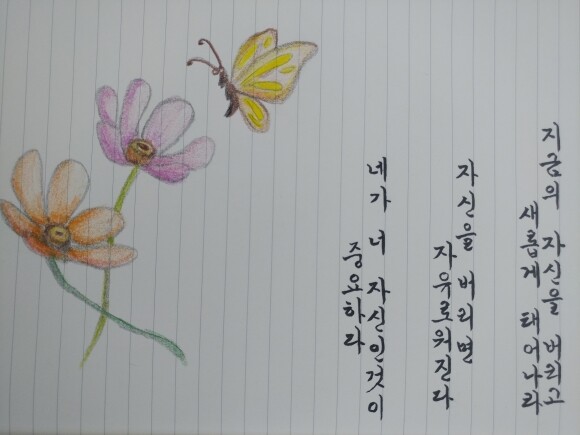 지금의 자신을 버리고
새롭게 태어나라
자신을 버리면
자유로워진다
네가 너 자신인것이
중요하다